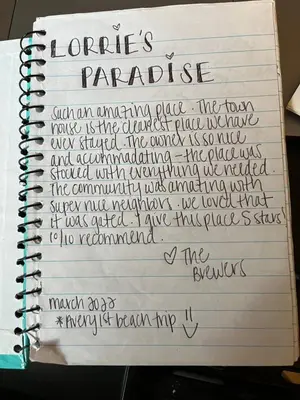 LORRIE'S
PARADISE
Such an amazing place. The town
house is the cleanest place we have
ever stayed. The owner is so nice
and accommadating - the place was
stocked with everything we needed.
The community was amating with
super nice neighbors. we loved that
it was gated. I give this place 5 stars!
10/10 recommend.
♡ The
Brewers
march 2022
*Avery 1st beach trip